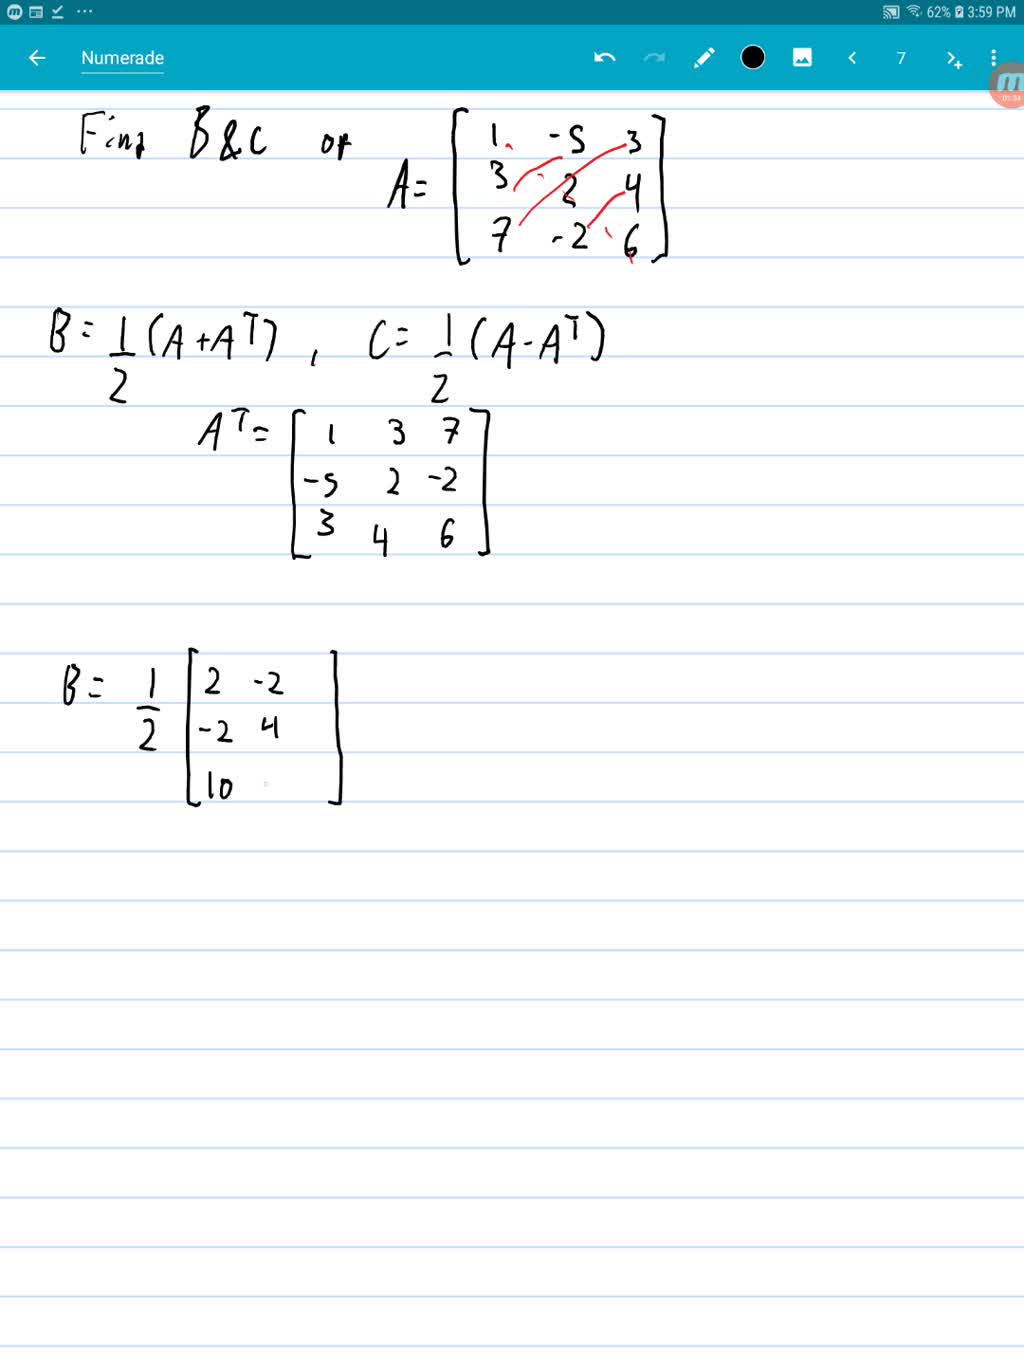 62% 3:59 PM
Numerade
7
01:34
Find B&C of A= [ 1 -5 3
3 2 4
7 -2 6 ]
B= 1/2 (A+A^T), C= 1/2 (A-A^T)
A^T= [ 1 3 7
-5 2 -2
3 4 6 ]
B= 1/2 [ 2 -2
-2 4
10 ]